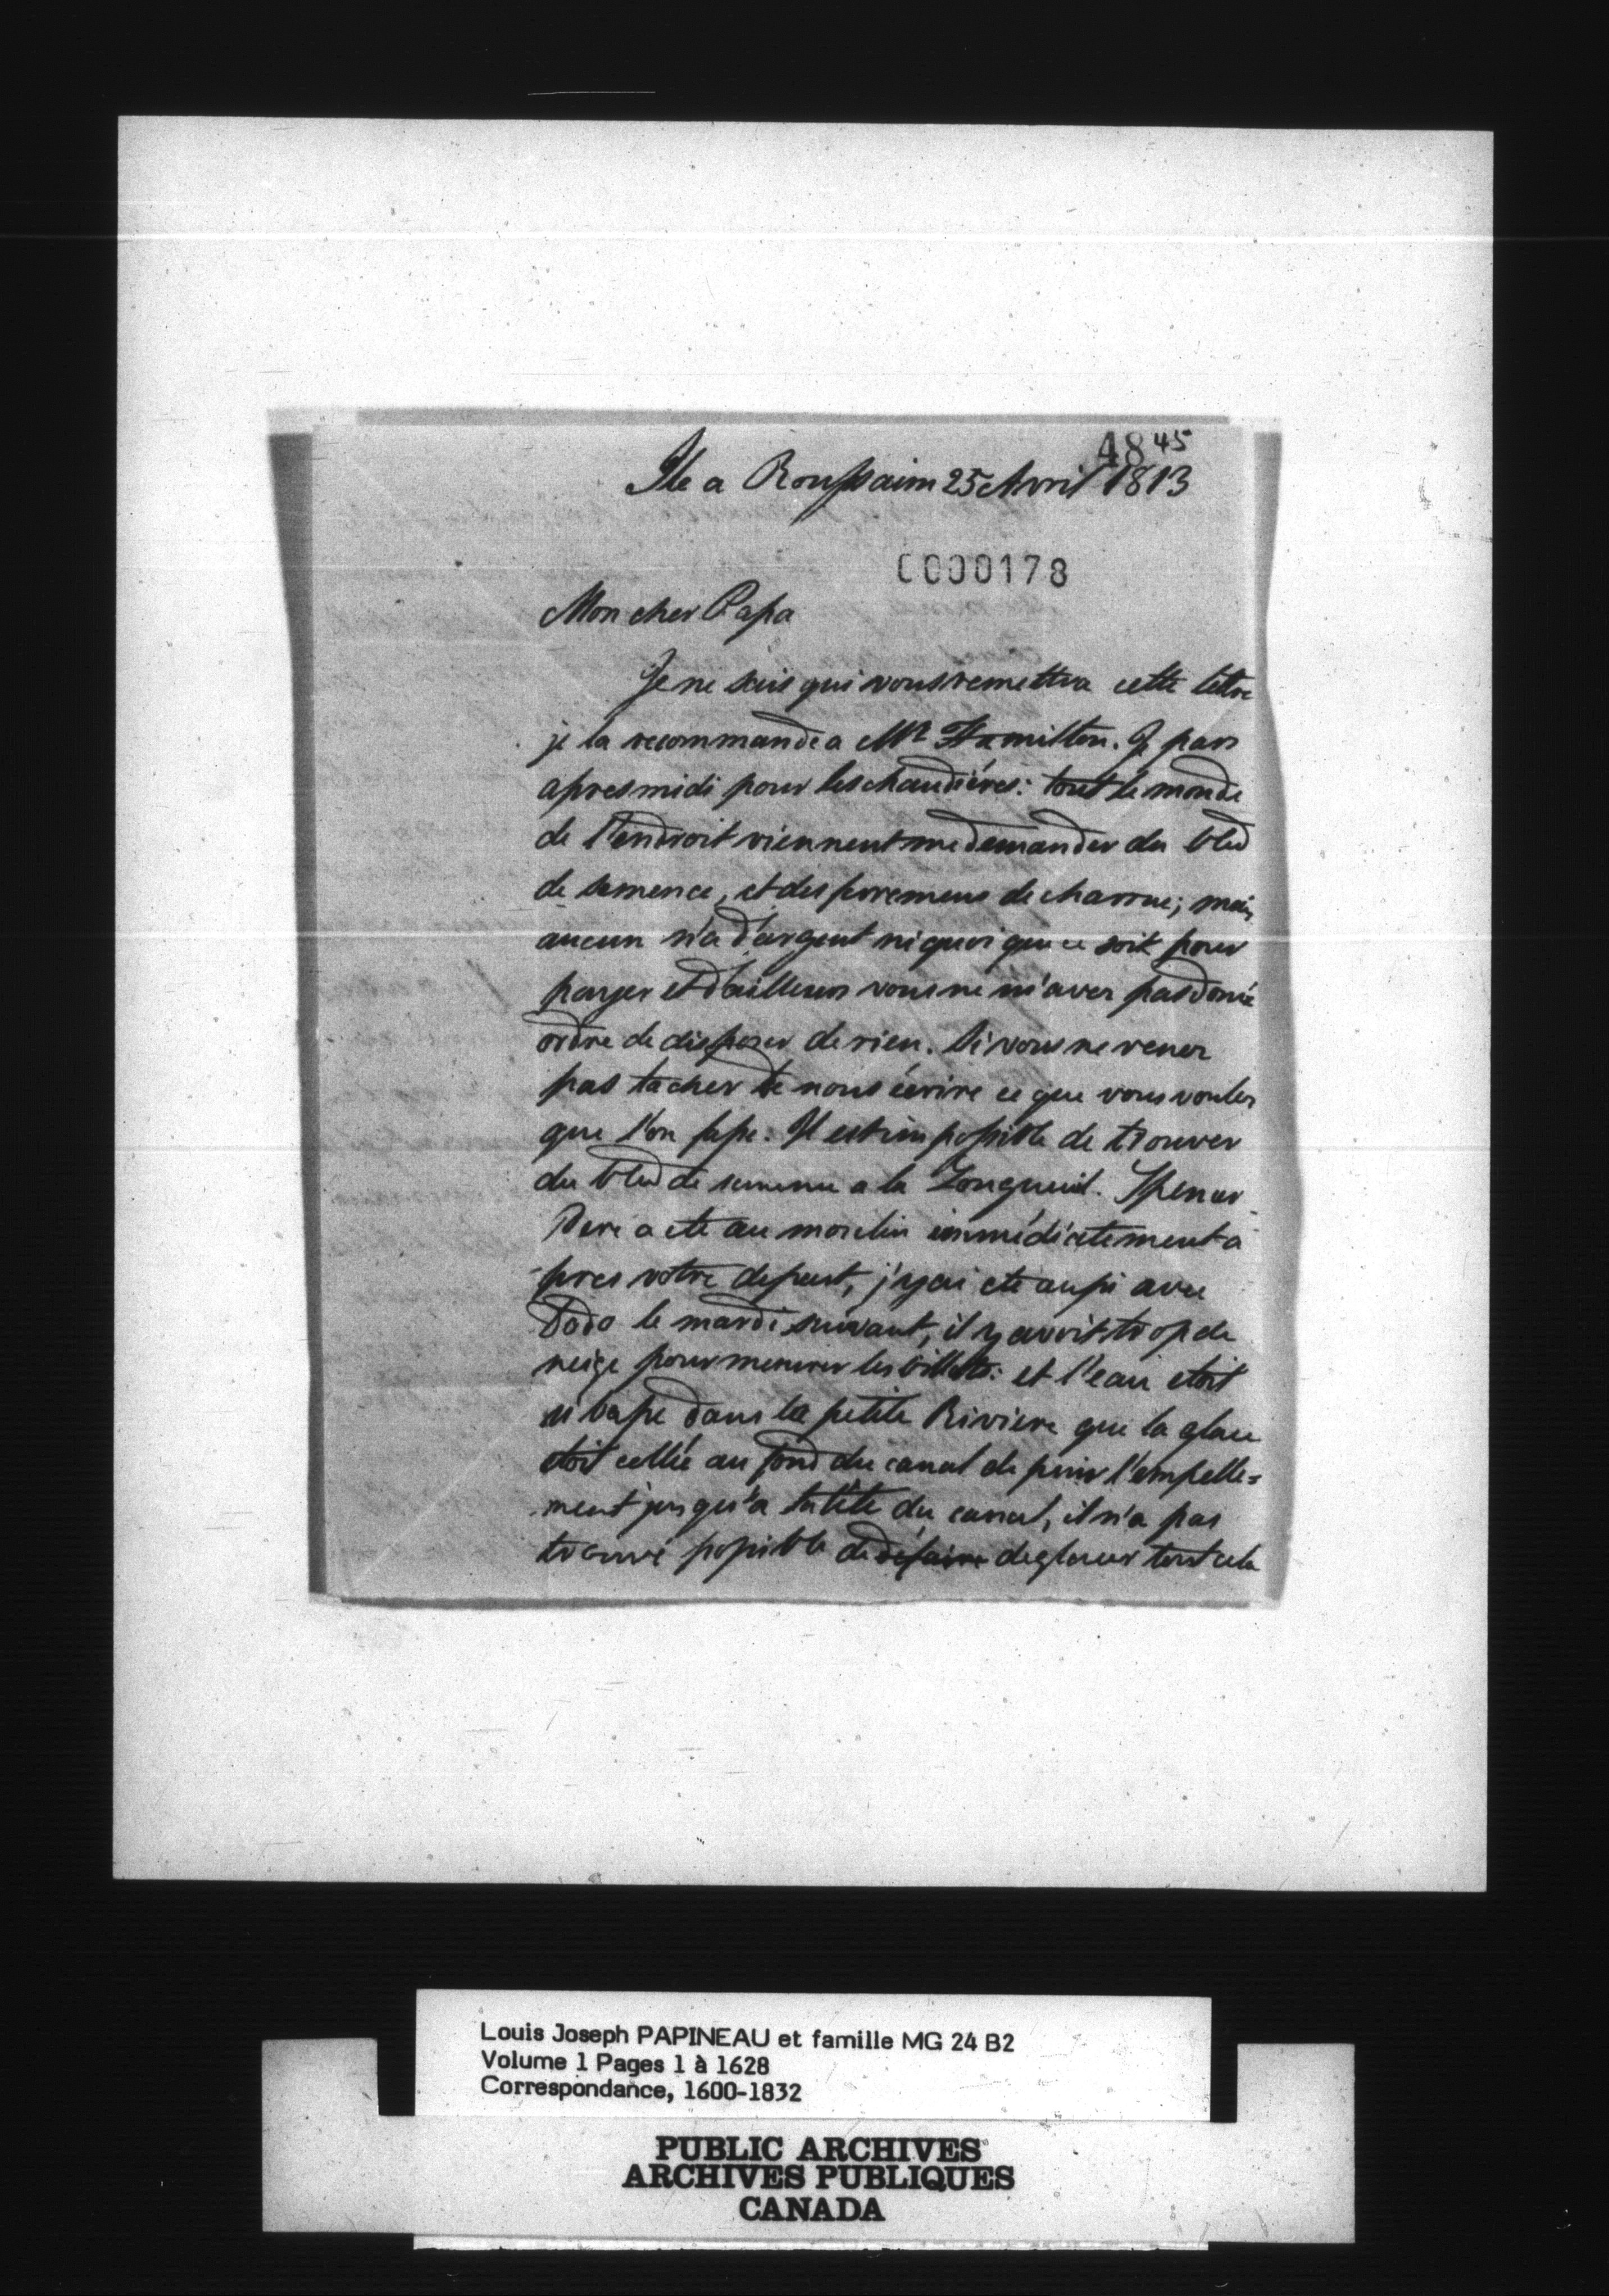 48 45
Ile a Roussaim 25 Avril 1813
C000178
Mon cher Papa
Je ne sais qui vous remettra cette lettre
je la recommande a Mr Hamilton. Je pars
apres midi pour les chaudiéres: tout le monde
de l'endroit viennent me demander du bled
de semence, et des ferremens de charrue; mais
aucun n'a d'argent ni quoi que ce soit pour
payer et d'ailleurs vous ne m'avez pas donné
ordre de disposer de rien. Si vous ne venez
pas tachez de nous écrire ce que vous voulez
que l'on fasse. Il est impossible de trouver
du bled de semence a la Longueuil.
Pere a ete au moulin immédiatement a
pres votre depart, j'y ai ete aussi avec
Dodo le mardi suivant, il y avoit trop de
neige pour mesurer les billots: et l'eau etoit
si basse dans la petite Riviere que la glace
etoit collée au fond du canal depuis l'empelle=
ment jusqu'a la tête du canal, il n'a pas
trouvé possible de défaire deglacer tout cela
Louis Joseph PAPINEAU et famille MG 24 B2
Volume 1 Pages 1 à 1628
Correspondance, 1600-1832
PUBLIC ARCHIVES
ARCHIVES PUBLIQUES
CANADA